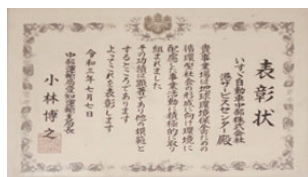 表彰状
いすゞ自動車中部株式会社
港サービスセンター殿
貴事業場は地球環境保全のための
循環型社会の形成に向け環境に
配慮した事業活動に積極的に取り
組まれました
その功績は顕著であり他の模範と
するところであります
よってこれを表彰します
令和三年七月七日
中部運輸局愛知運輸支局長
小林博之